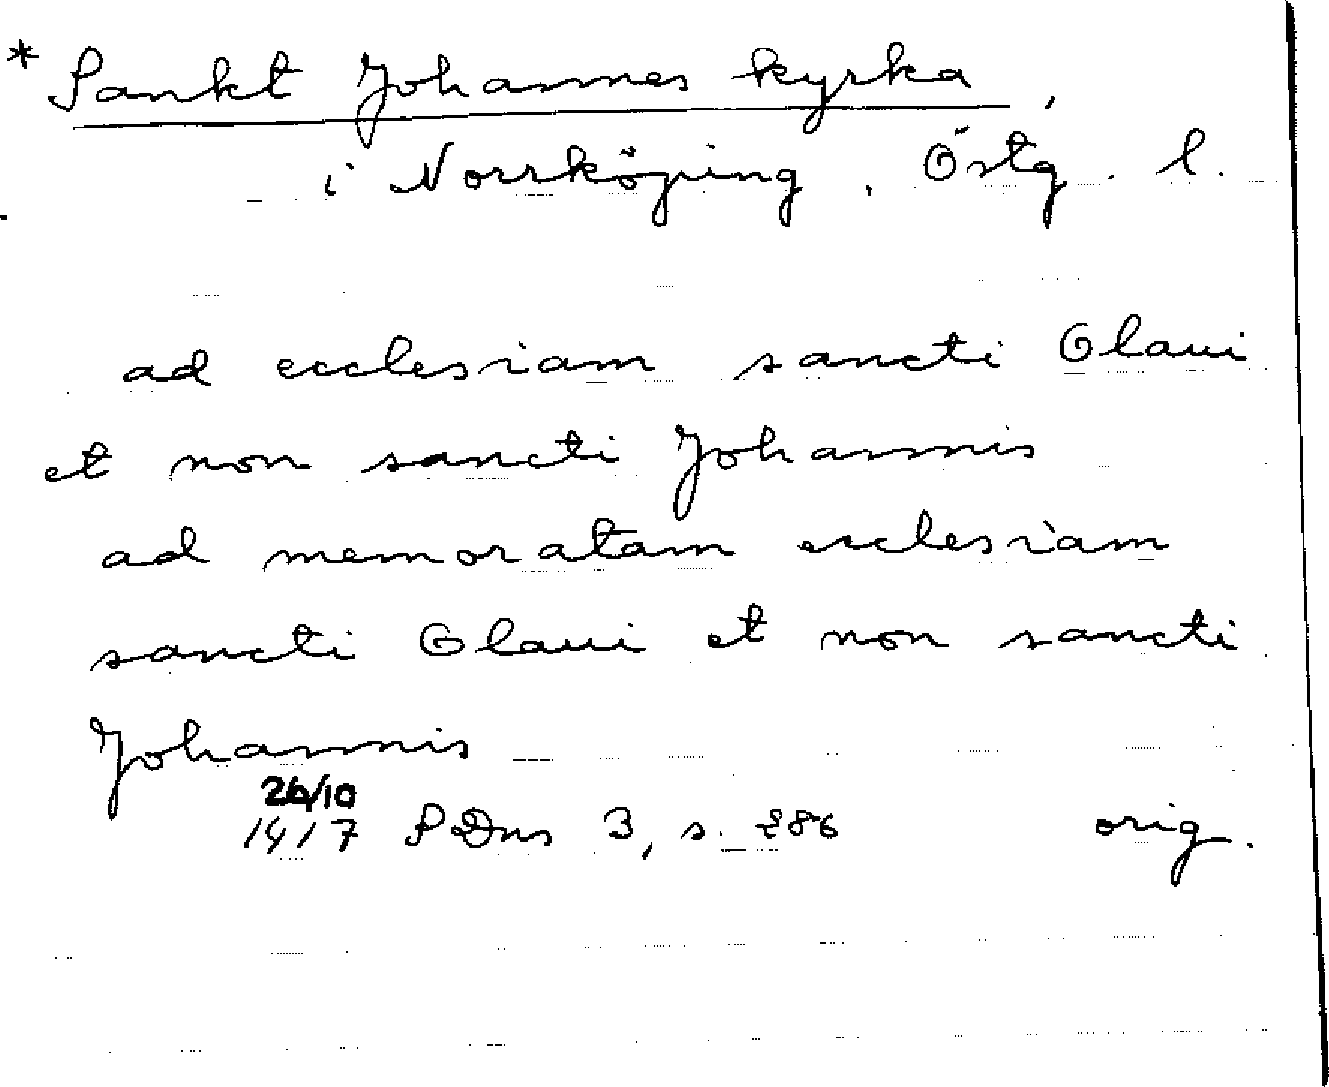 * Sankt Johannes kyrka,
i Norrköping, Östg. l.
ad ecclesiam sancti Olaui
et non sancti Johannis
ad memoratam ecclesiam
sancti Olaui et non sancti
Johannis
26/10
1417 SDns 3, s. 286 orig.